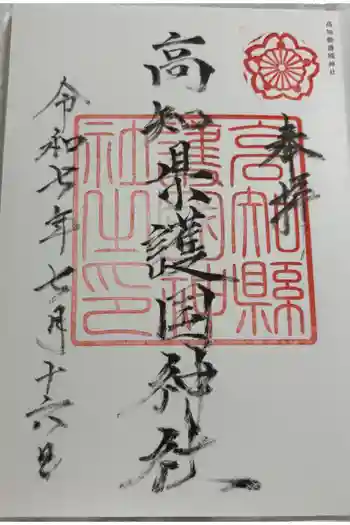 高知縣護國神社
奉拝
高知県護国神社
令和七年七月十六日
高知縣護國神社之印